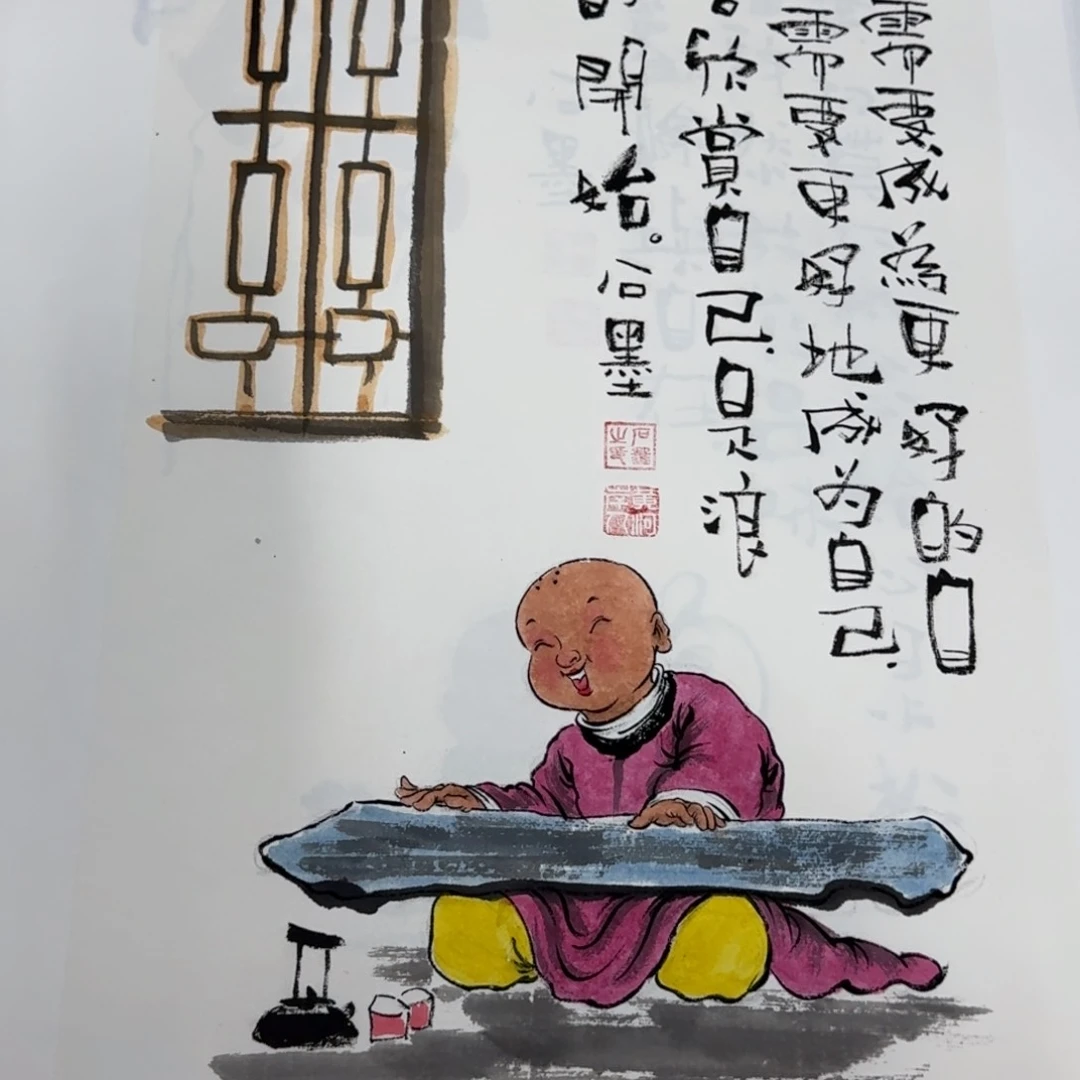 需要成為更好的自
需要更好地成为自己.
欣賞自己.是浪
開始。石墨